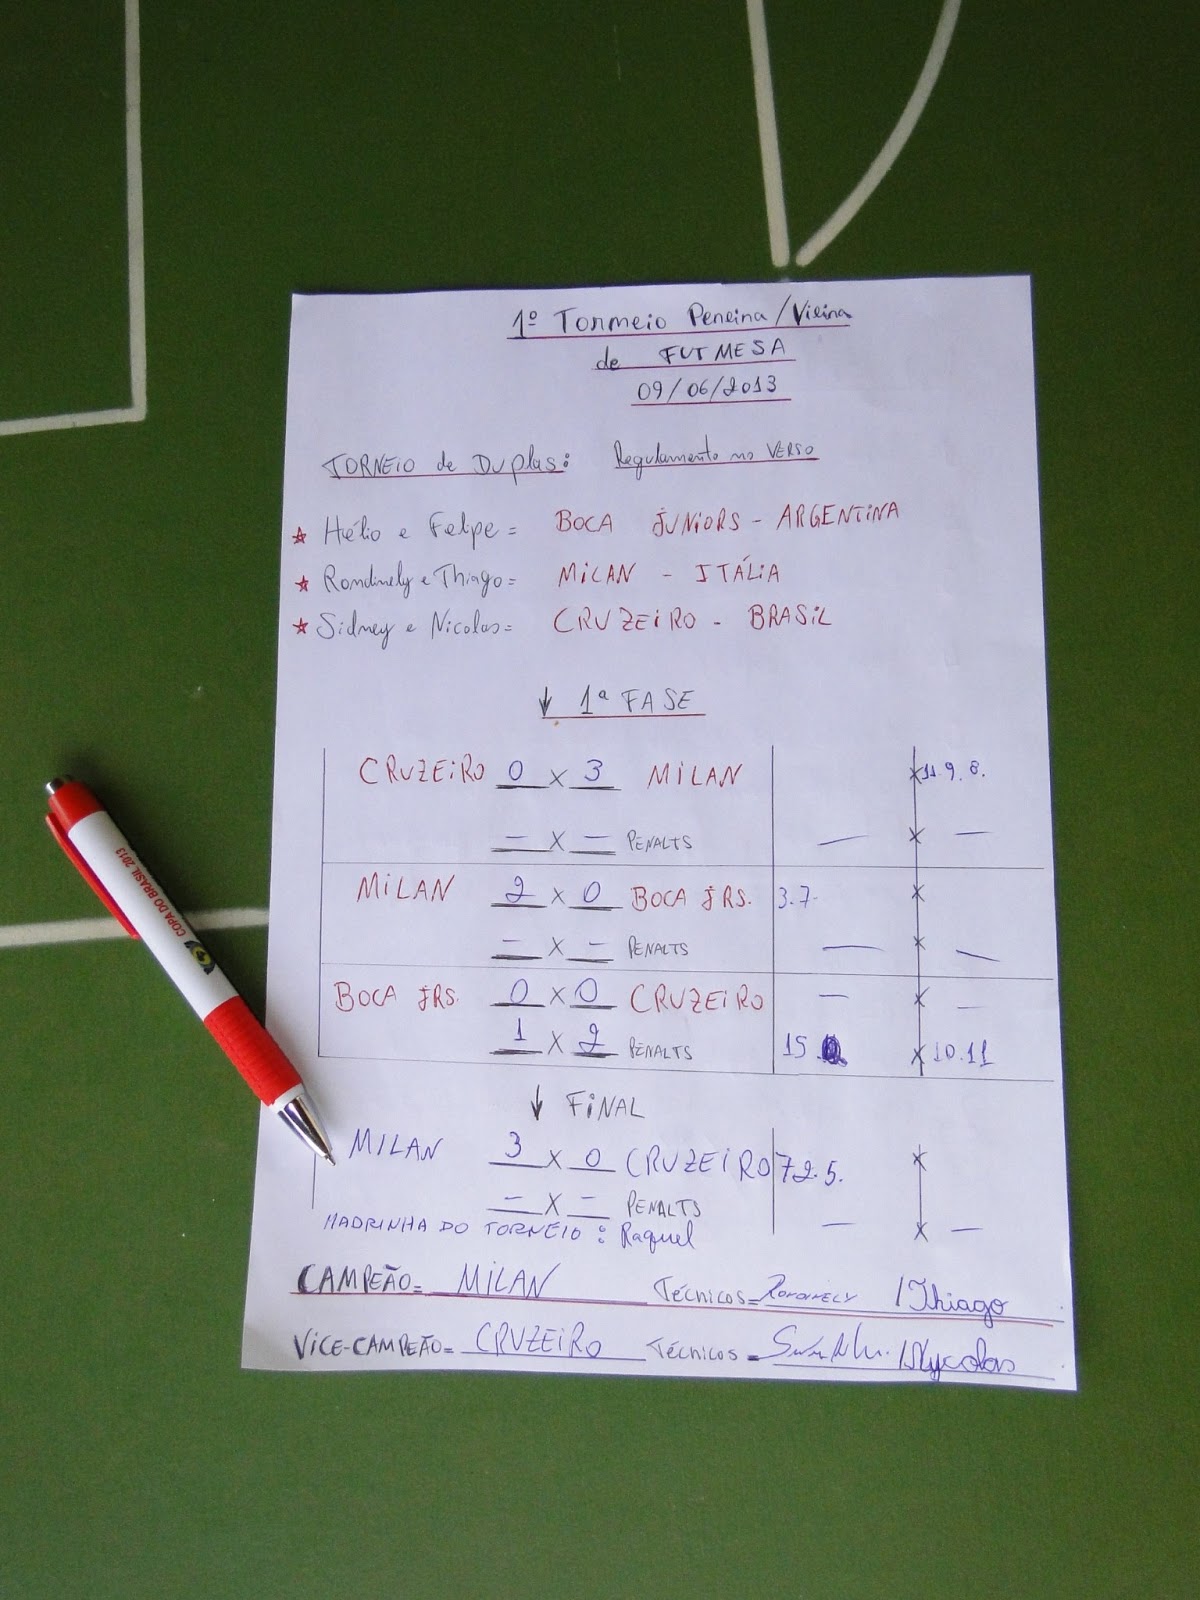 1º Torneio Pereira/Vieira
de FUTMESA
09/06/2013
TORNEIO de Duplas: Regulamento no VERSO
Hélio e Felipe = BOCA JUNIORS - ARGENTINA
Rondinely e Thiago = MILAN - ITÁLIA
Sidney e Nicolas = CRUZEIRO - BRASIL
↓ 1ª FASE
CRUZEIRO 0 X 3 MILAN X 11.9.8.
— X — PENALTS — X —
MILAN 2 X 0 BOCA JRS. 3.7. X
— X — PENALTS — X —
BOCA JRS. 0 X 0 CRUZEIRO — X —
1 X 2 PENALTS 15 X 10.11
↓ FINAL
MILAN 3 X 0 CRUZEIRO 7.2.5. X
— X — PENALTS — X —
MADRINHA DO TORNEIO: Raquel
CAMPEÃO = MILAN TÉCNICOS = RONDINELY / Thiago
VICE-CAMPEÃO = CRUZEIRO TÉCNICOS = / Nycolas
COPA DO BRASIL 2013